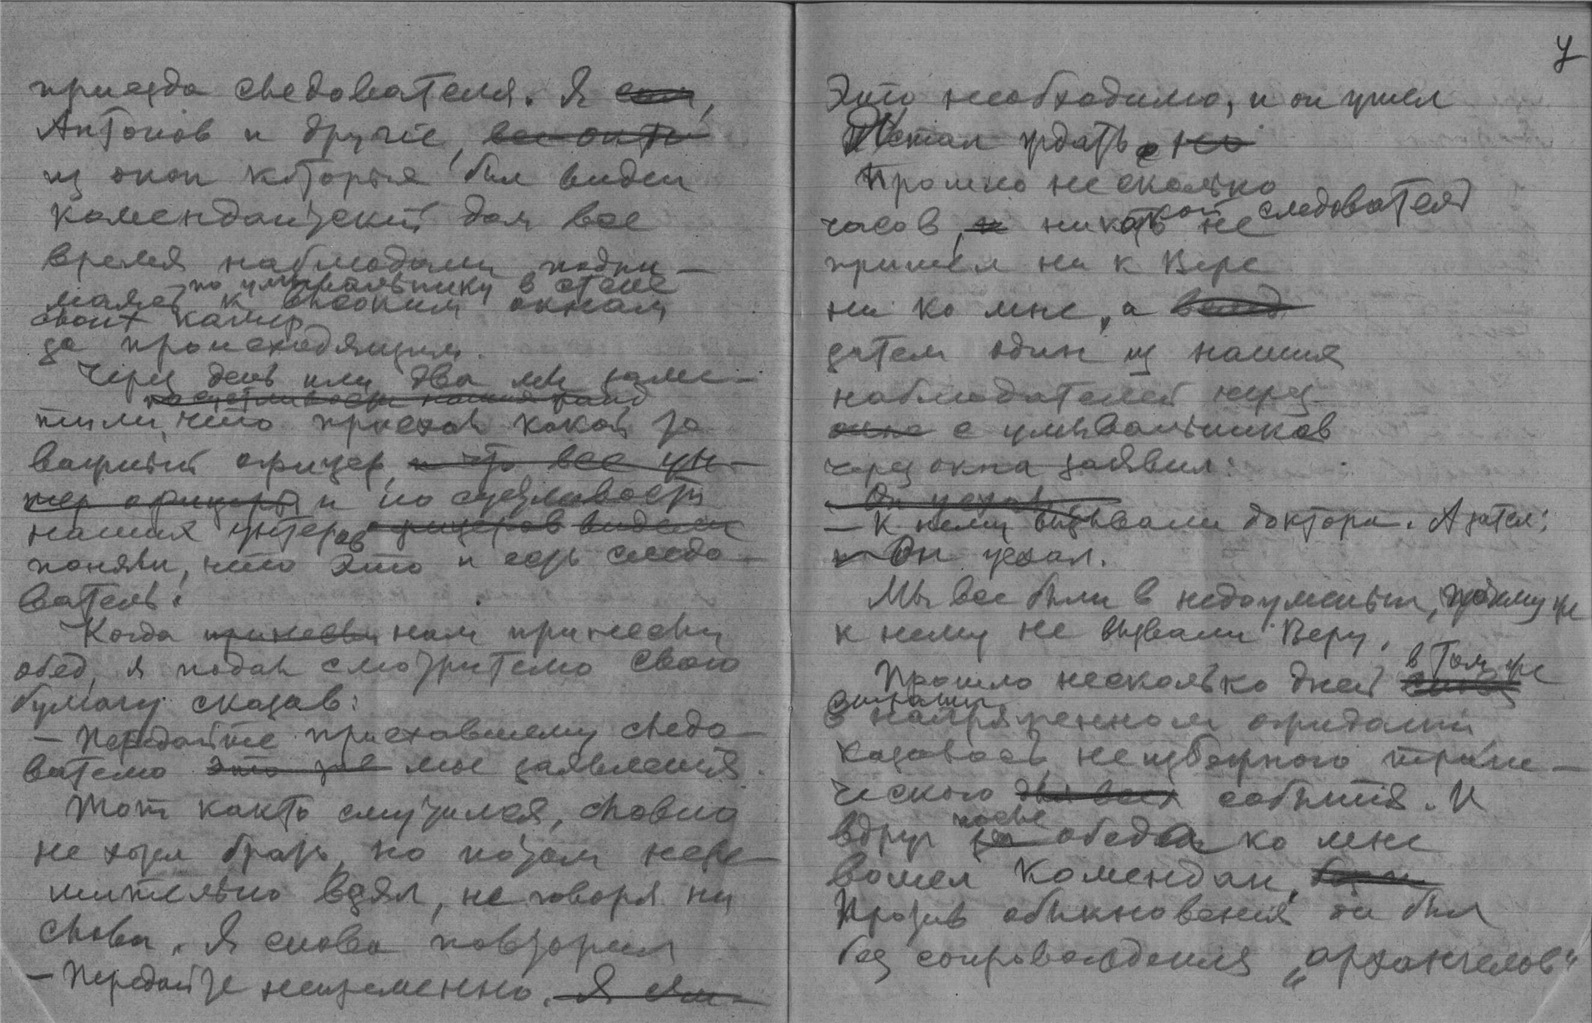 приезда следователя. Я сам,
Антонов и другие, все окна
из окон которых был виден
комендантский дом все
время наблюдали подни-
по умывальнику в стене
маясь к высоким окнам
своих камер
за происходящим.
Через день или два мы заме-
тили, что приехал какой то
важный офицер, и что все ун-
тер офицеры и по суетливости
наших унтеров офицеров видели
поняли, что это и есть следо-
ватель.
Когда принесли нам принесли
обед, я подал смотрителю свою
бумагу сказав:
— Передайте приехавшему следо-
вателю это же мое заявления.
Тот както смутился, словно
не хотел брать, но потом нере-
шительно взял, не говоря ни
слова. Я снова повторил
— Передайте неизменно. Я сам
7
Это необходимо, и он ушел
Я стал ждать но
Прошло несколько
часов, и никакой следователь не
пришел ни к Вере
ни ко мне, а
затем один из наших
наблюдателей через
окно с умывальников
через окна заявил:
— Он уехал
— К нему вызывали доктора. А затем:
— Он уехал.
Мы все были в недоуменьи, почему же
к нему не вызвали Веру.
Прошло несколько дней в том же
страшн
в напряженном ожидании
казалось неизбежного траги-
ческого для всех события. И
вдруг после обеда ко мне
вошел Комендан, был
Против обыкновения он был
без сопровождения „архангелов"